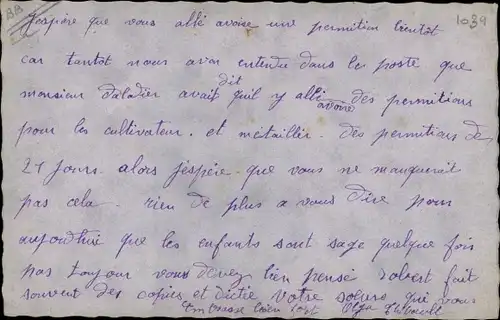 BB
1039
J'espère que vous allé avoire une permition bientôt
car tantôt nous avon entendu dans le poste que
monsieur Daladier avait dit quil y allai avoire des permitions
pour les cultivateur. et métaillier. des permitions de
21 jours. alors j'espère que vous ne manquerait
pas cela. rien de plus a vous dire pour
aujourdhui que les enfants sont sage quelque fois
pas toujour vous devez bien pensé robert fait
souvent des copies et dictée Votre soeur qui vous
embrasse bien fort Olga Thibault